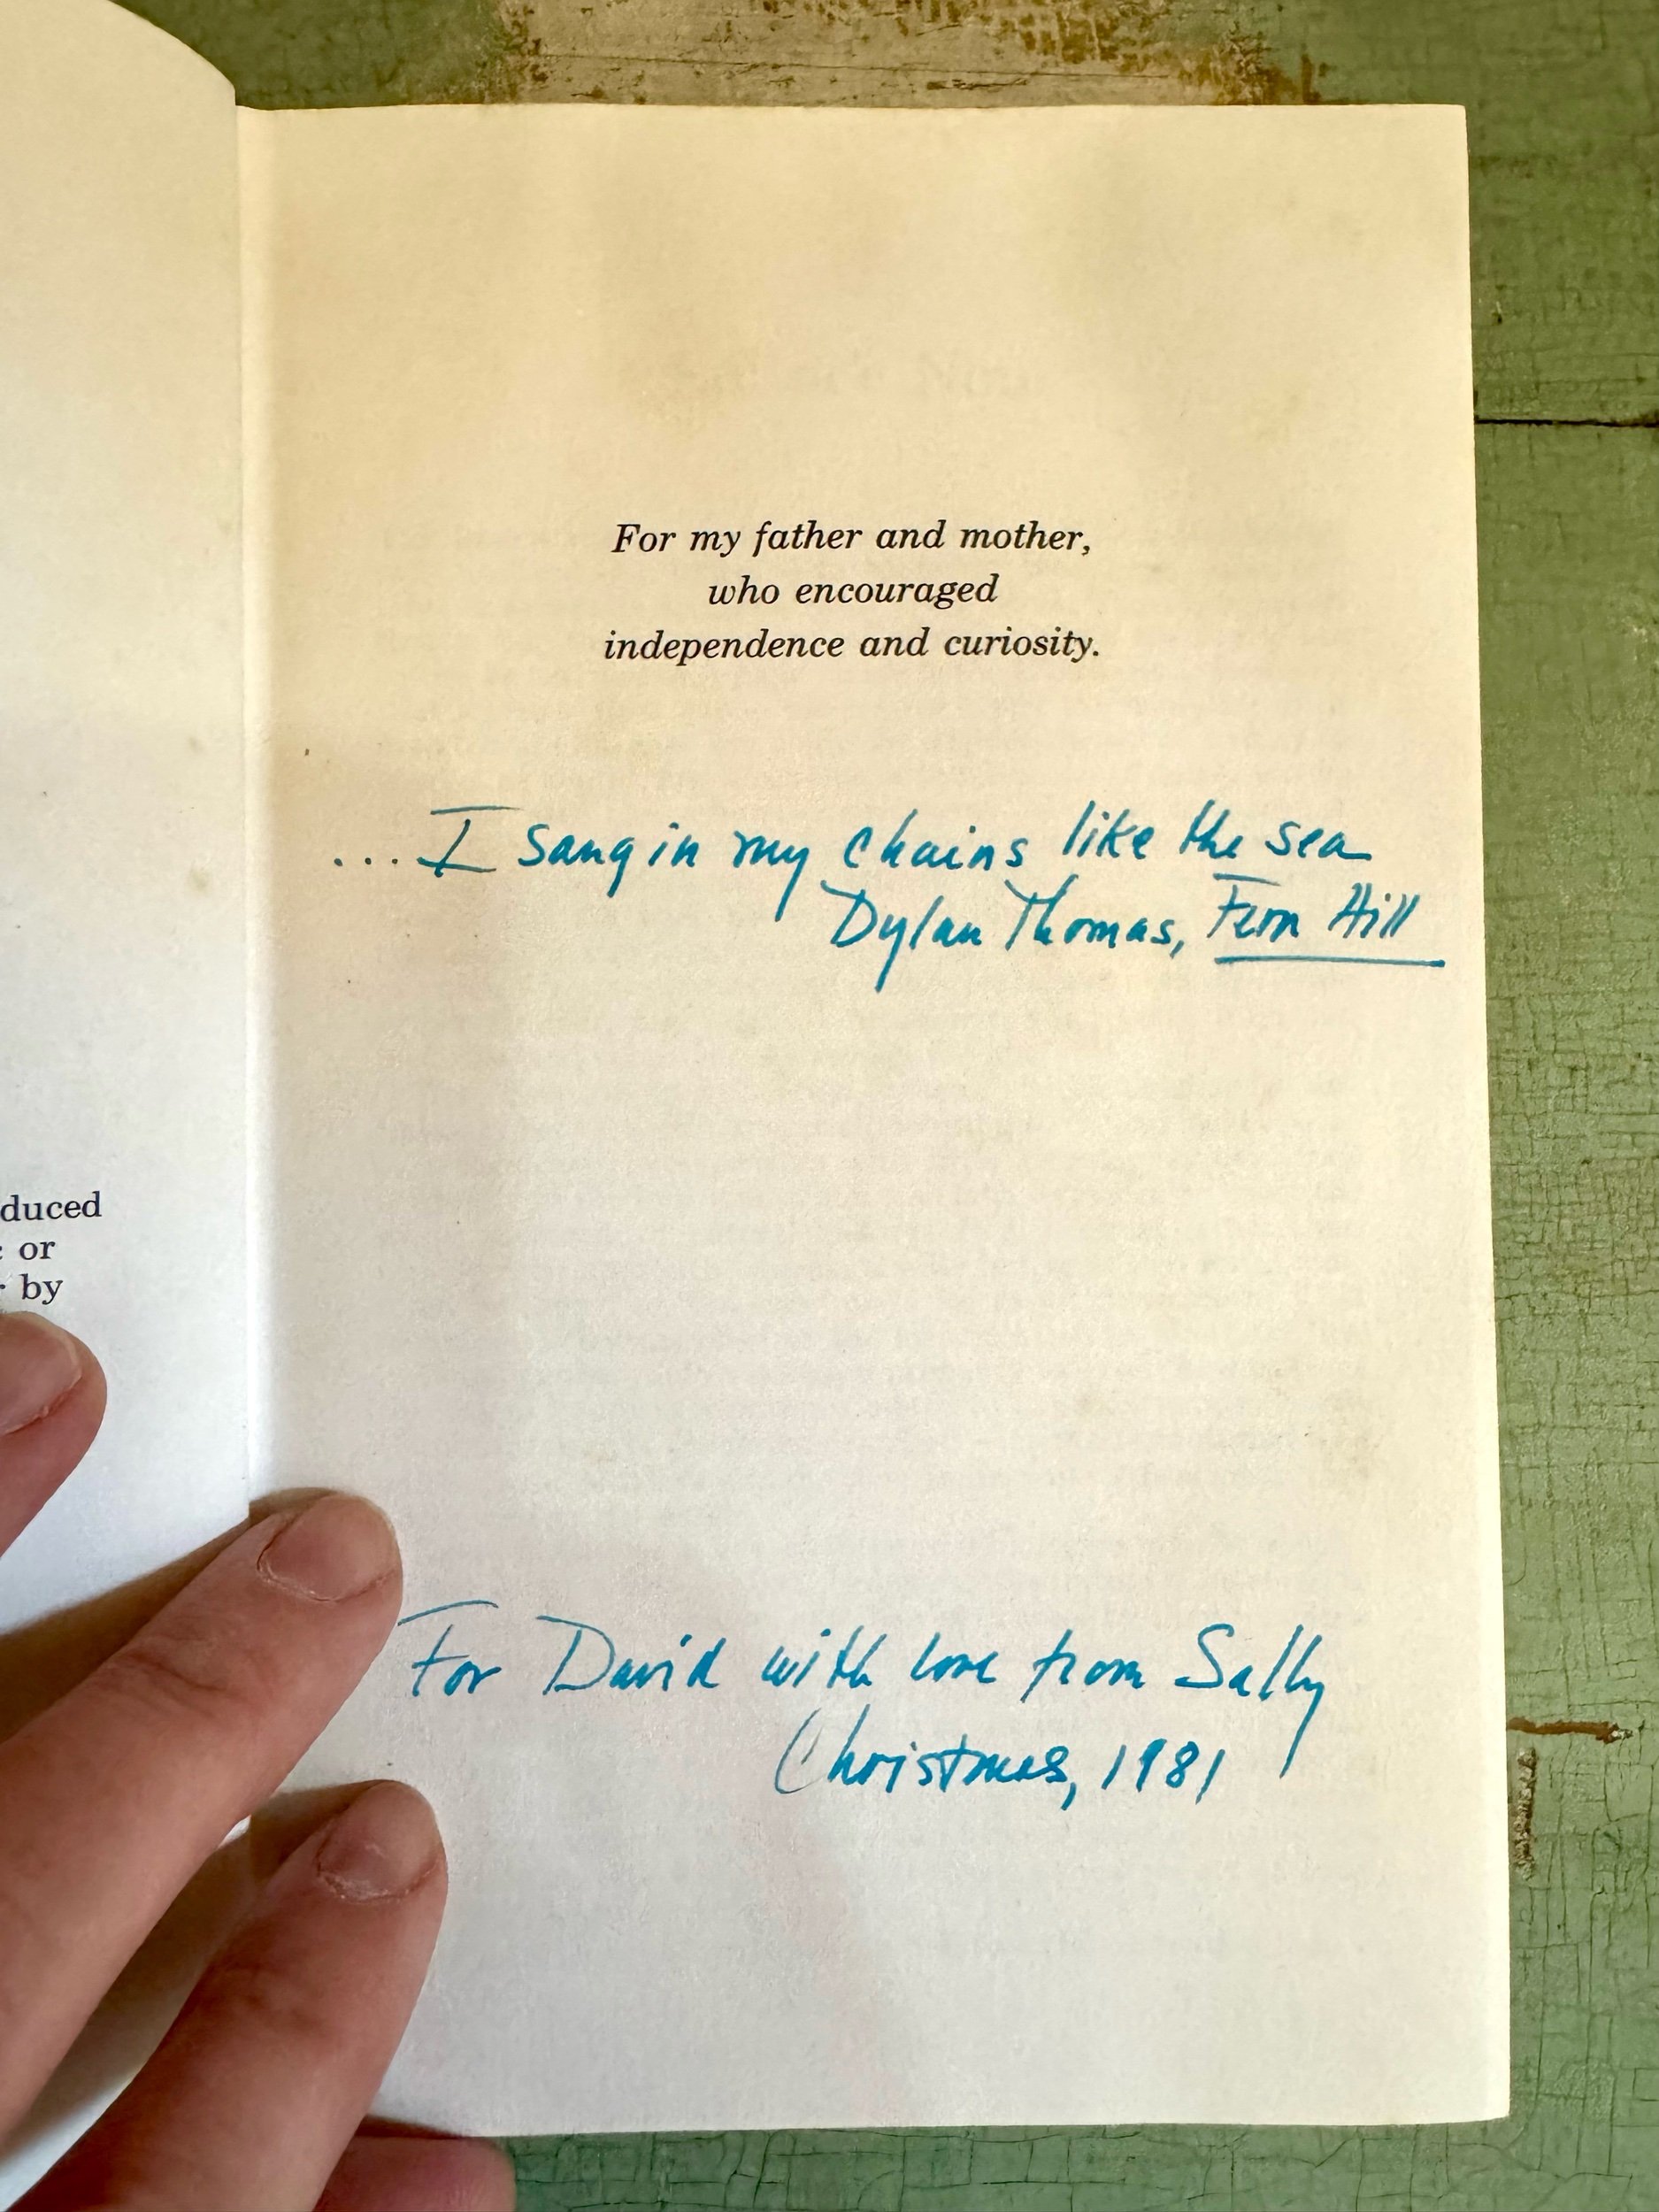 For my father and mother,
who encouraged
independence and curiosity.
... I sang in my chains like the sea
Dylan Thomas, Fern Hill
duced
or
by
For David with love from Sally
Christmas, 1981